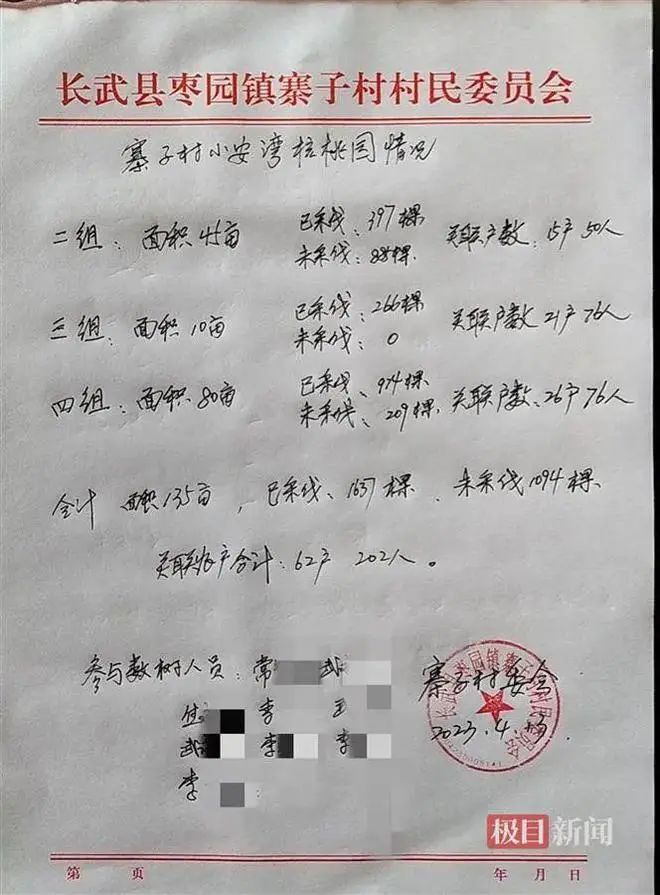 长武县枣园镇寨子村村民委员会
寨子村小安湾核桃园情况
二组:面积45亩 已采伐:397棵 关联户数:15户50人
未采伐:885棵
三组:面积10亩 已采伐:266棵 关联户数21户76人
未采伐:0
四组:面积80亩 已采伐:974棵 关联户数:26户76人
未采伐:209棵
合计 面积135亩,已采伐:1637棵.未采伐1094棵
关联农户合计:62户 202人。
参与数树人员:常 武
李 王
武 李 李
李
寨子村委会
2023.4.13.
极目新闻
第 页 年 月 日